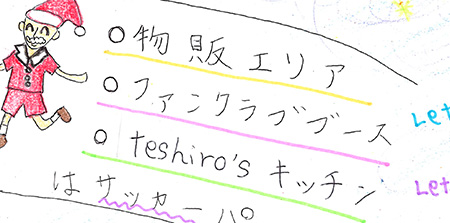 ○物販エリア
○ファンクラブブース
Let
○teshiro'sキッチン
Let
はサッカーパ